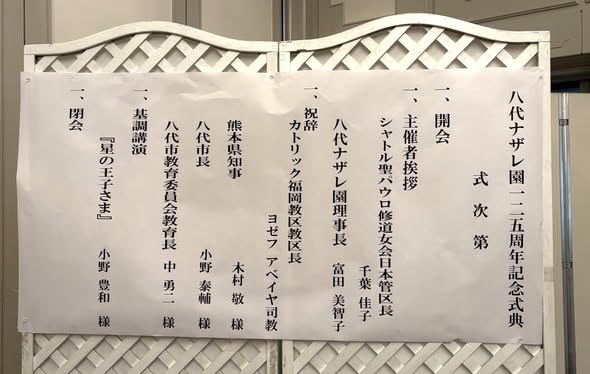 八代ナザレ園一二五周年記念式典
式次第
一、開会
一、主催者挨拶
シャトル聖パウロ修道女会日本管区長
千葉 佳子
八代ナザレ園理事長 富田 美智子
一、祝辞
カトリック福岡教区教区長
ヨゼフ アベイヤ司教
熊本県知事 木村 敬 様
八代市長 小野 泰輔 様
八代市教育委員会教育長 中 勇二 様
一、基調講演
『星の王子さま』 小野 豊和 様
一、閉会